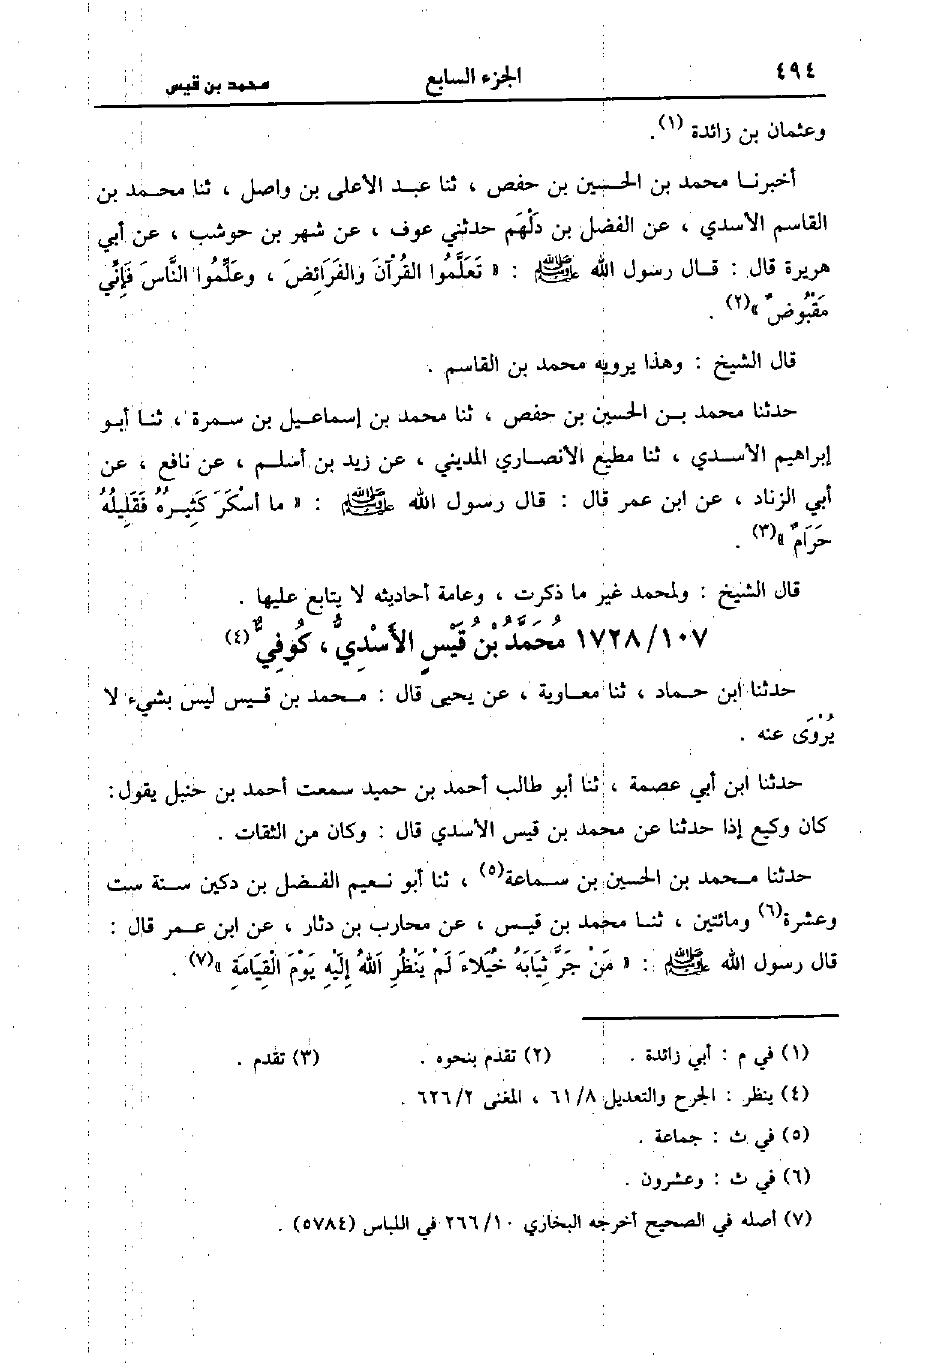 ٤٩٤ الجزء السابع محمد بن قيس
وعثمان بن زائدة (١).
أخبرنا محمد بن الحسين بن حفص ، ثنا عبد الأعلى بن واصل ، ثنا محمد بن
القاسم الأسدي ، عن الفضل بن دَلْهَم حدثني عوف ، عن شهر بن حوشب ، عن أبي
هريرة قال : قال رسول الله ﷺ : « تَعَلَّمُوا القُرْآنَ والفَرَائِضَ ، وعَلِّمُوا النَّاسَ فَإِنِّي
مَقْبُوضٌ »(٢) .
قال الشيخ : وهذا يرويه محمد بن القاسم .
حدثنا محمد بن الحسين بن حفص ، ثنا محمد بن إسماعيل بن سمرة ، ثنا أبو
إبراهيم الأسدي ، ثنا مطيع الأنصاري المديني ، عن زيد بن أسلم ، عن نافع ، عن
أبي الزناد ، عن ابن عمر قال : قال رسول الله ﷺ : « ما أسْكَرَ كَثِيرُهُ فَقَلِيلُهُ
حَرَامٌ »(٣) .
قال الشيخ : ولمحمد غير ما ذكرت ، وعامة أحاديثه لا يتابع عليها .
١٧٢٨/١٠٧ مُحَمَّدُ بْنُ قَيْسٍ الأَسْدِيُّ ، كُوفِيٌّ (٤)
حدثنا ابن حماد ، ثنا معاوية ، عن يحيى قال : محمد بن قيس ليس بشيء لا
يُرْوَى عنه .
حدثنا ابن أبي عصمة ، ثنا أبو طالب أحمد بن حميد سمعت أحمد بن حنبل يقول :
كان وكيع إذا حدثنا عن محمد بن قيس الأسدي قال : وكان من الثقات .
حدثنا محمد بن الحسين بن سماعة(٥) ، ثنا أبو نعيم الفضل بن دكين سنة ست
وعشرة(٦) ومائتين ، ثنا محمد بن قيس ، عن محارب بن دثار ، عن ابن عمر قال :
قال رسول الله ﷺ : « مَنْ جَرَّ ثِيَابَهُ خُيَلاءَ لَمْ يَنْظُرِ اللهُ إِلَيْهِ يَوْمَ الْقِيَامَةِ »(٧) .
(١) في م : أبي زائدة . (٢) تقدم بنحوه . (٣) تقدم .
(٤) ينظر : الجرح والتعديل ٦١/٨ ، المغنى ٦٢٦/٢ .
(٥) في ث : جماعة .
(٦) في ث : وعشرون .
(٧) أصله في الصحيح أخرجه البخاري ٢٦٦/١٠ في اللباس (٥٧٨٤) .